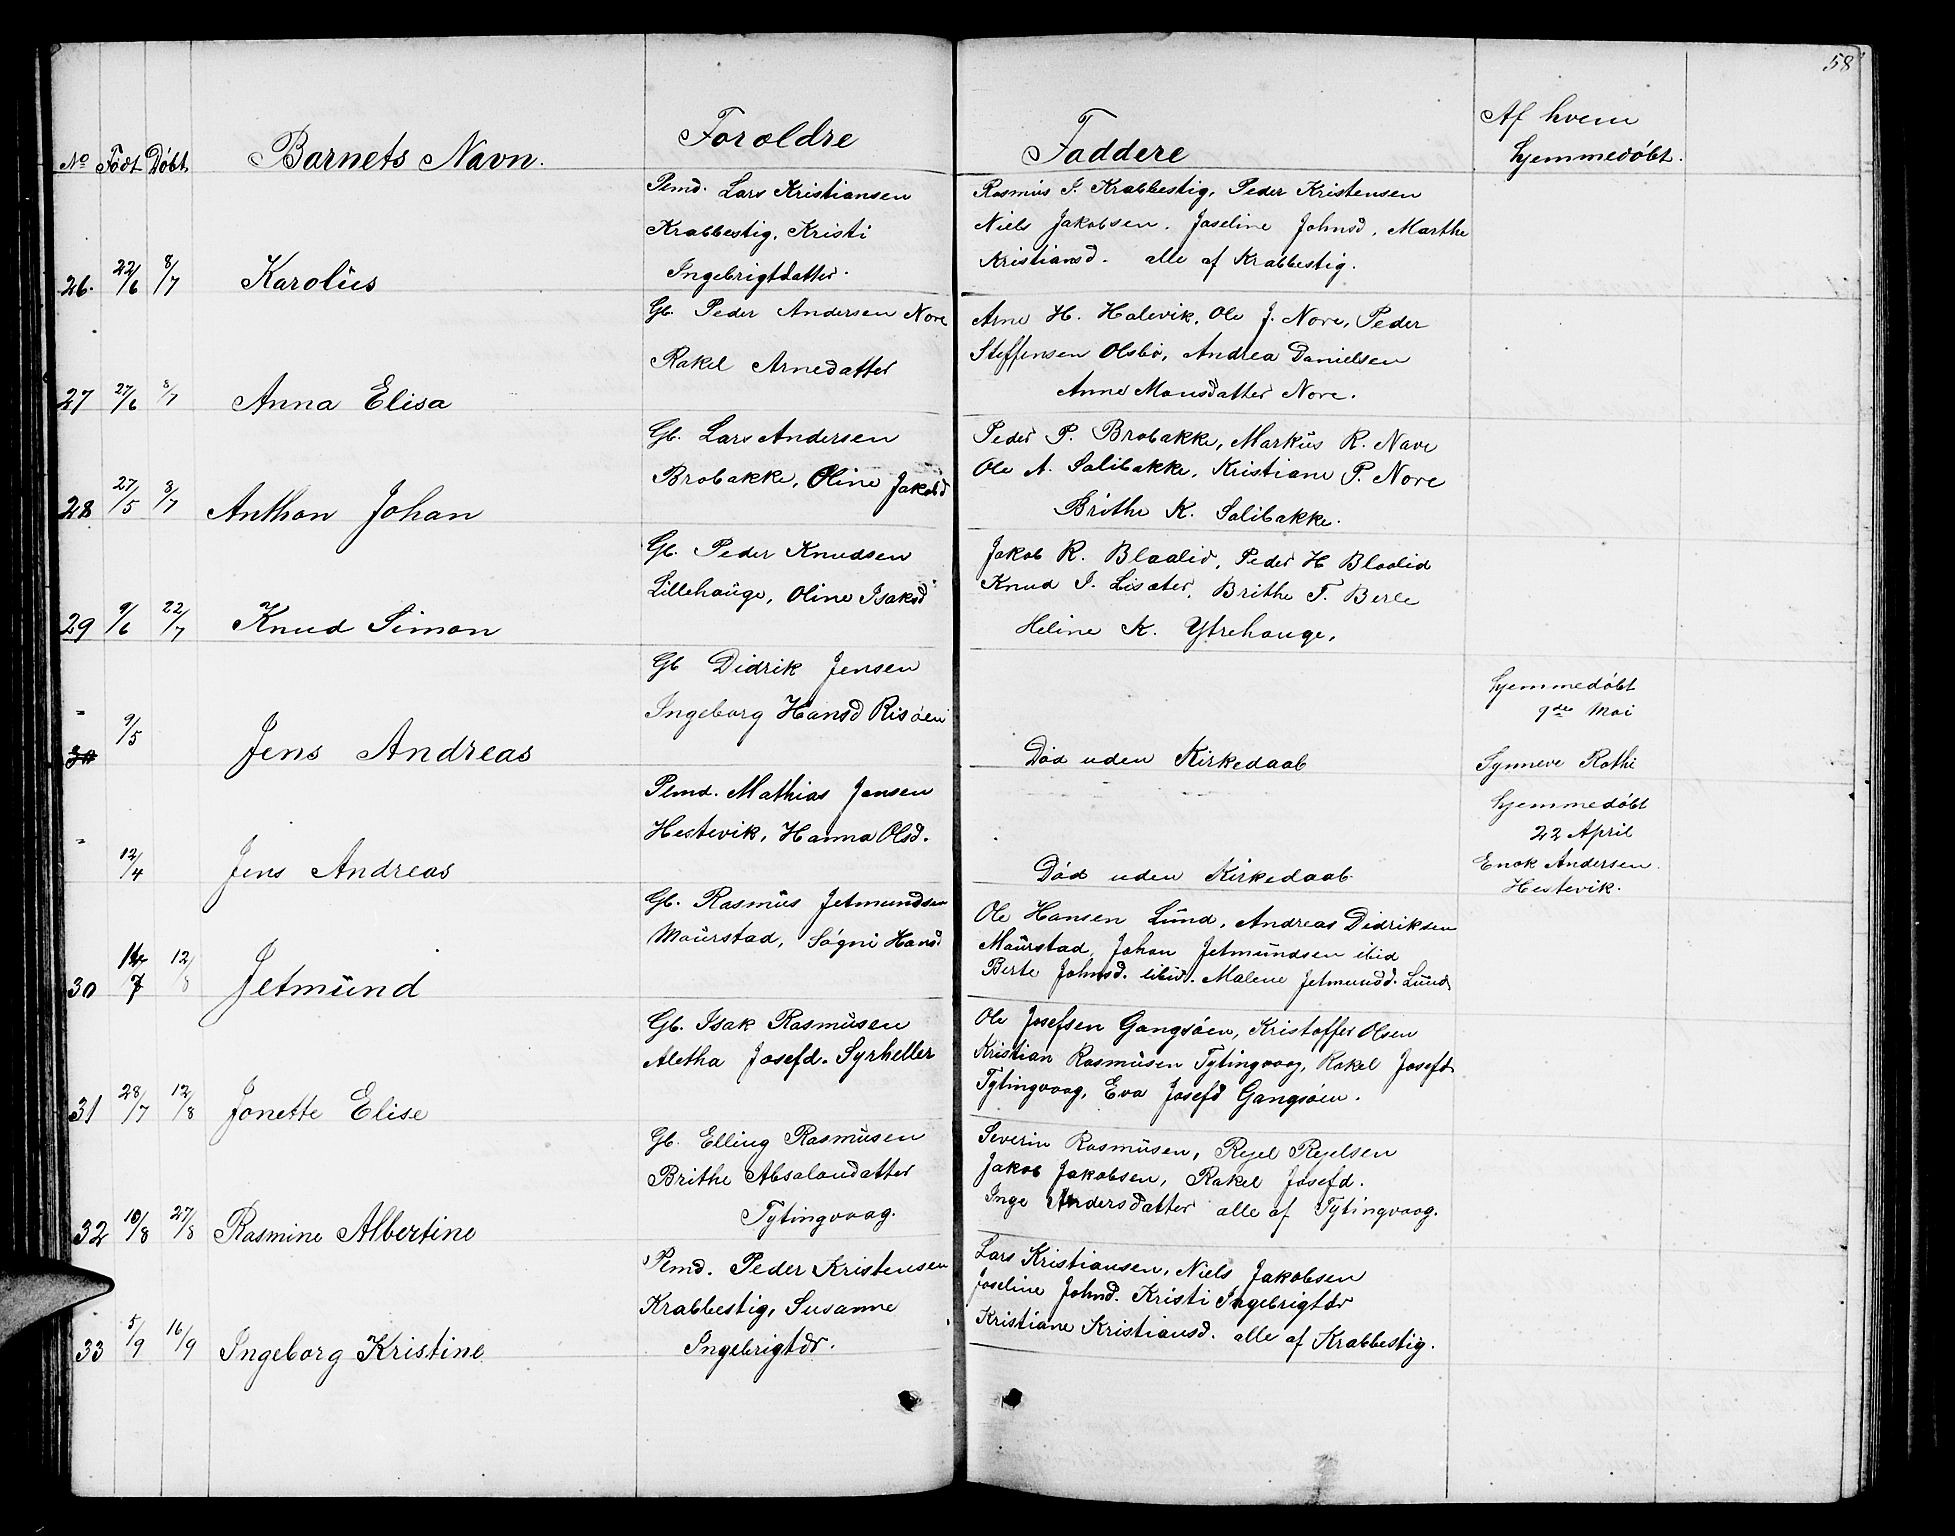 58
No Født Døbt Barnets Navn. Forældre Faddere Af hvem
hjemmedøbt.
26. 22/6 8/7 Karolus
Plmd. Lars Kristiansen
Krabbestig, Kristi
Ingebrigtdatter.
Rasmus I. Krabbestig, Peder Kristensen
Niels Jakobsen, Joseline Johnsd, Marthe
Kristiansd. alle af Krabbestig.
27 27/6 8/7 Anna Elisa
Gb. Peder Andersen Nore
Rakel Arnedatter
Arne H. Halevik, Ole J. Nore, Peder
Steffensen Olsbø, Andrea Danielsen
Anne Monsdatter Nore.
28 27/5 8/7 Anthon Johan
Gb. Lars Andersen
Brobakke, Oline Jakobd
Peder P. Brobakke, Markus R. Nave
Ole A. Salibakke, Kristiane P. Nore
Brithe K. Salibakke.
29 9/6 22/7 Knud Simon
Gb. Peder Knudsen
Lillehauge, Oline Isaksd
Jakob R. Blaalid, Peder H Blaalid
Knud I. Lisæter, Brithe T. Berle
Heline K. Ytrehauge,
30 9/5 Jens Andreas
Gb Didrik Jensen
Ingeborg Hansd Risøen
Død uden Kirkedaab
hjemmedøbt
9de Mai
Synneve Rothi
" 12/4 Jens Andreas
Plmd. Mathias Jansen
Hestevik, Hanna Olsd.
Død uden Kirkedaab.
hjemmedøbt
22 April
Enok Andersen.
Hestevik.
30 12/8 Jetmund
Gb. Rasmus Jetmundsen
Maurstad, Søgni Hansd
Ole Hansen Lund, Andreas Didriksen
Maurstad, Johan Jetmundsen ibid
Berte Johnsd. ibid. Malene Jetmundd. Lund
31 28/7 12/8 Jonette Elise
Gb. Isak Rasmusen
Aletha Josefd. Syrheller
Ole Josefsen Gangsøen, Kristoffer Olsen
Kristian Rasmusen Tytingvaag, Rakel Josefd
Tytingvaag, Eva Josefd Gangsøen.
32 10/8 27/8 Rasmine Albertine
Gb. Elling Rasmusen
Brithe Absalondatter
Tytingvaag.
Severin Rasmusen, Rejel Rejelsen
Jakob Jakobsen, Rakel Josefd.
Inge Andersdatter alle af Tytingvaag.
33 5/9 16/9 Ingeborg Kristine
Plmd. Peder Kristensen
Krabbestig, Susanne
Ingebrigtdr.
Lars Kristiansen, Niels Jakobsen
Joseline Johnd. Kristi Ingebrigtdr
Kristiane Kristiansd. alle af Krabbestig.